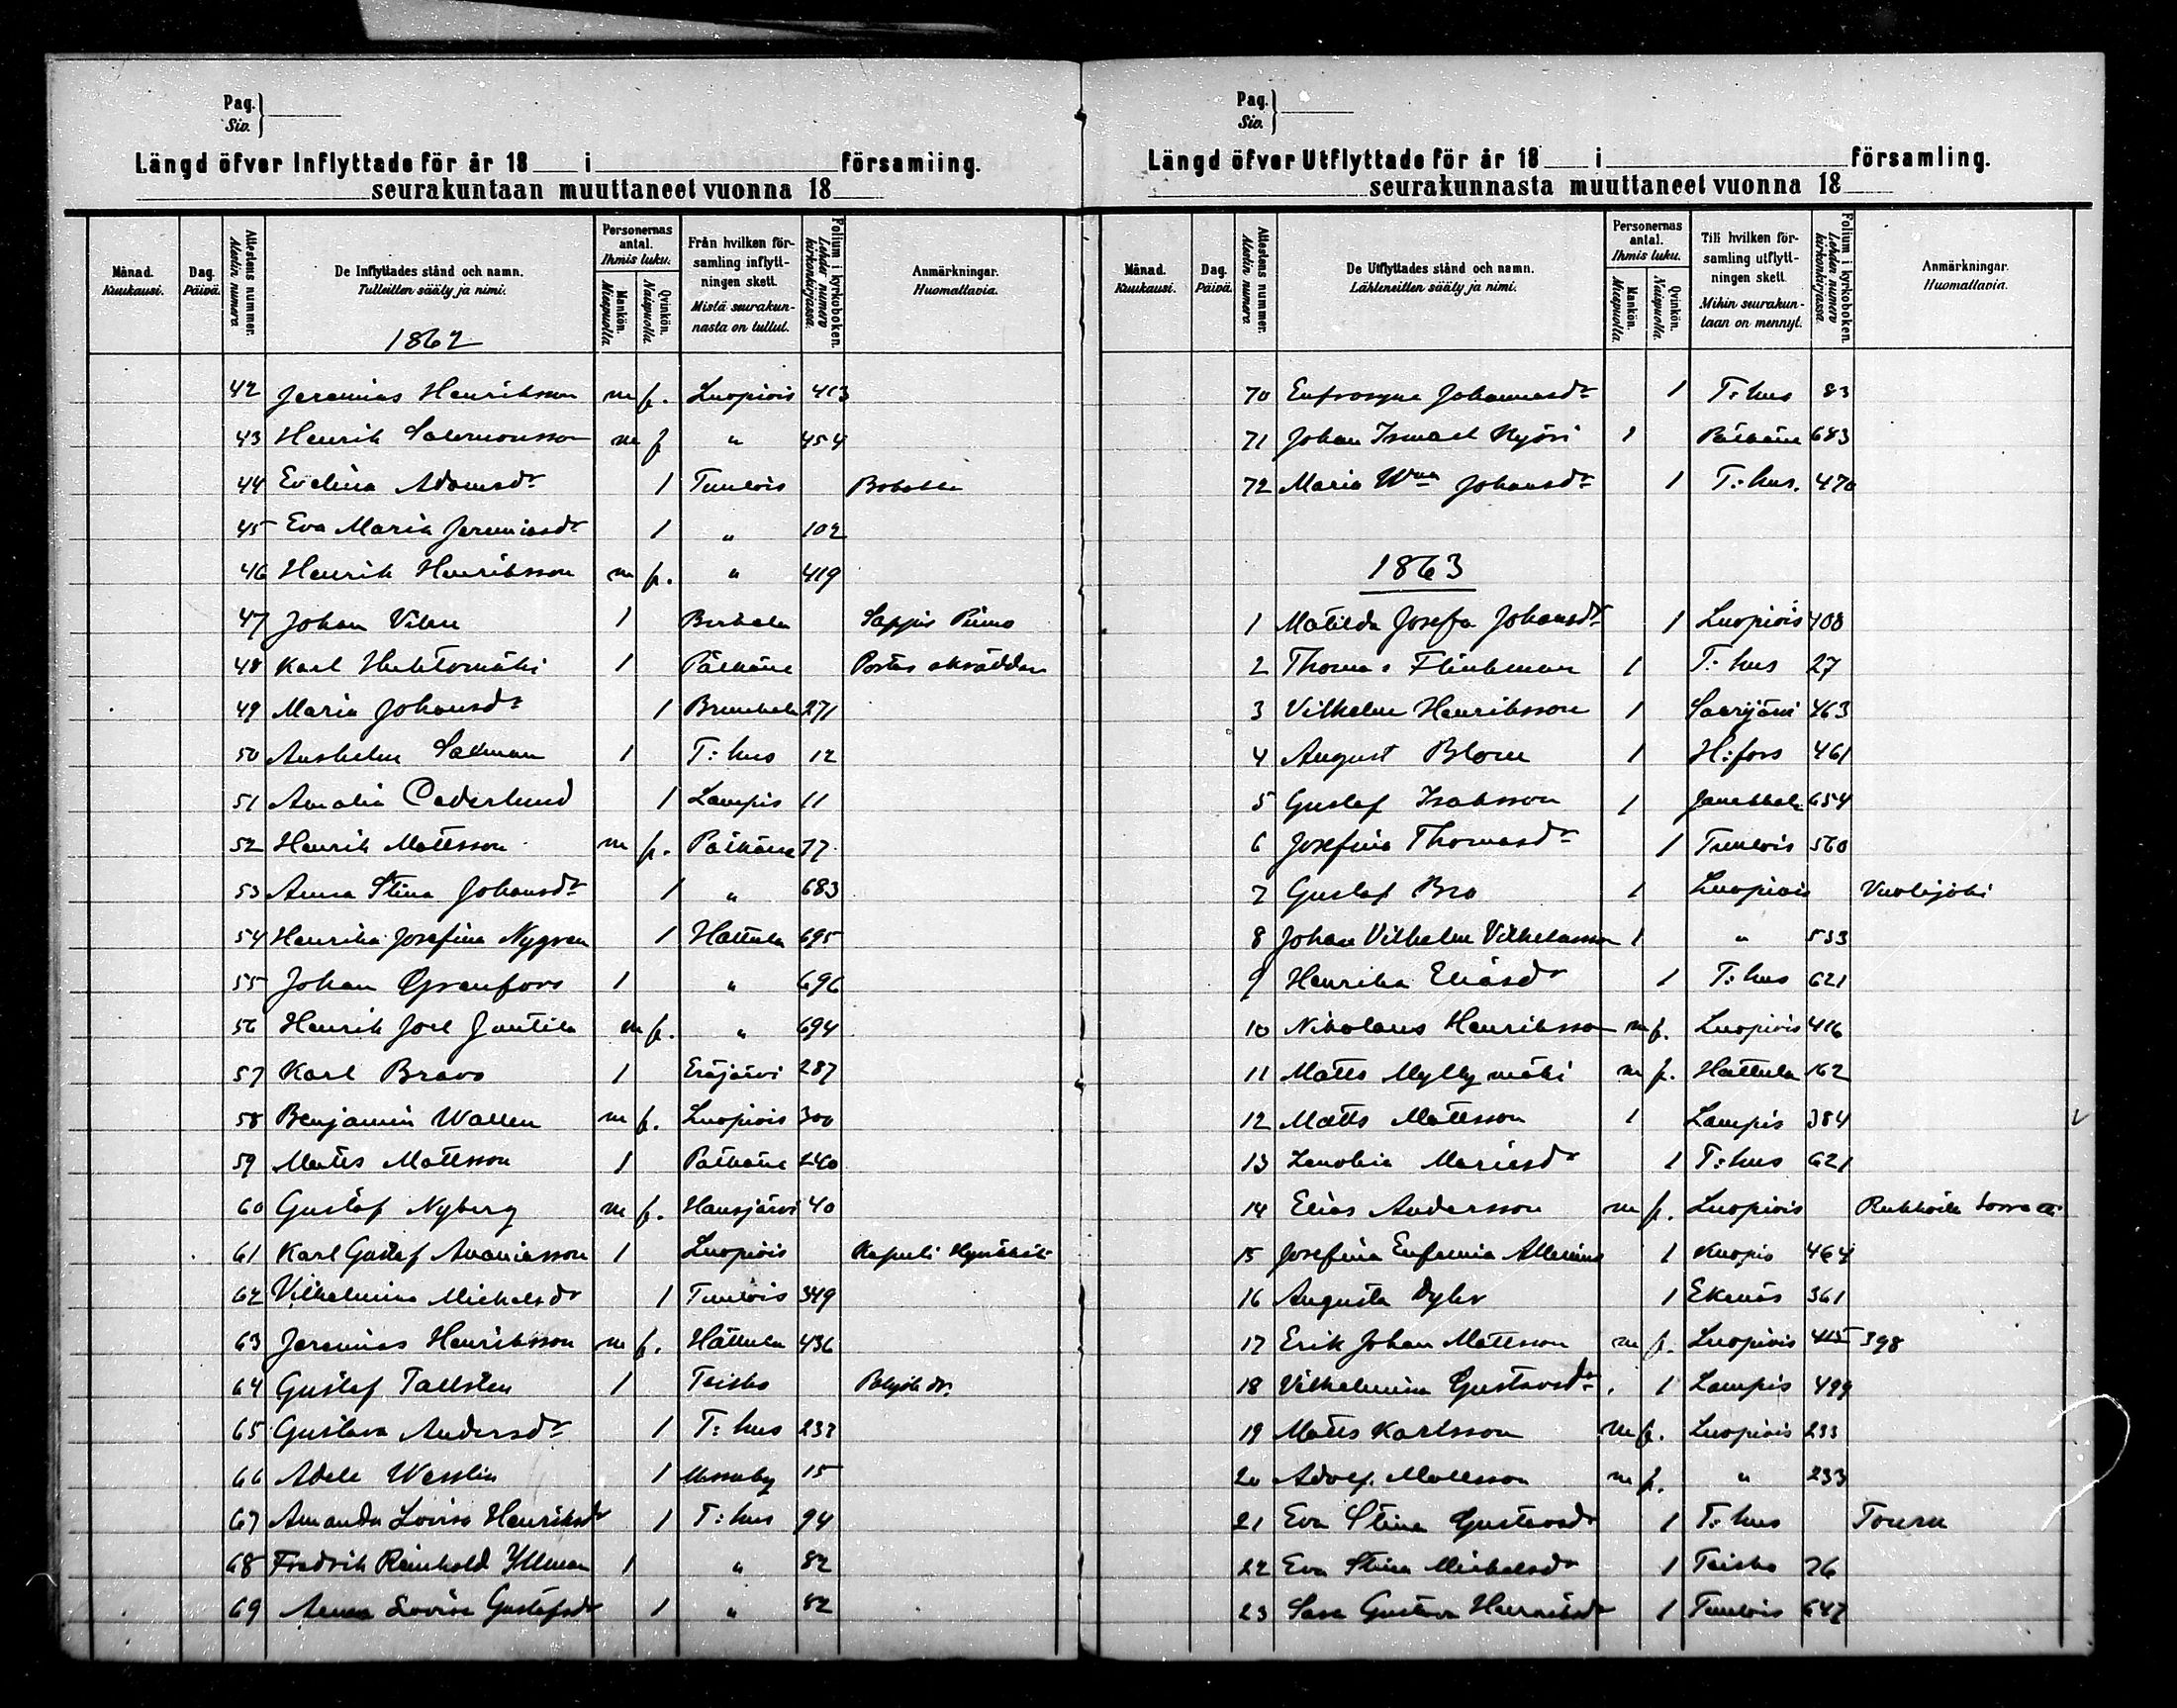 Pag.
Siv.
Längd öfver Inflyttade för år 18 i församling.
seurakuntaan muuttaneet vuonna 18
Månad.
Kuukausi.
Dag.
Päivä.
Attestens nummer.
Alestin numero
De Inflyttades stånd och namn.
Tulleitten sääty ja nimi.
1862
Personernas antal.
Ihmis luku.
Mankön.
Miespuolia.
Qvinkön.
Naispuolia.
Från hvilken församling inflyttningen skett.
Mistä seurakunnasta on tullut.
Folium i kyrkoboken.
Lehden numero kirkonkirjassa.
Anmärkningar.
Huomattavia.
42 Jeremias Henriksson m f. Luopiois 413
43 Henrik Salomonsson m f " 454
44 Evelina Adamsdr 1 Tuulois
45 Eva Maria Jeremiasdr 1 " 102
46 Henrik Henriksson m f. " 419
47 Johan Vilen 1 Birkala
48 Karl Huhtomäki 1 Pälkäne
49 Maria Johansdr 1 271
50 1 T:hus 12
51 Amalia Cederlund 1 Lampis 11
52 Henrik Mattsson m f. Pälkäne 77
53 Anna Stina Johansdr 1 " 683
54 Henrika Josefina Nygren 1 Hattula 695
55 Johan Granfors 1 " 696
56 Henrik Joel Jantila m f. " 694
57 Karl Bravo 1 Eräjärvi 287
58 Benjamin Wallen m f. Luopiois 300
59 Matts Mattsson 1 Pälkäne 240
60 Gustaf Nyberg m f. Hausjärvi 40
61 Karl Gustaf Ananiasson 1 Luopiois
62 Vilhelmina Michelsdr 1 Tuulois 349
63 Jeremias Henriksson m f. Hattula 436
64 Gustaf Tallsten 1 Teisko
65 Gustava Andersdr 1 T:hus 233
66 Adele Wesslin 1 15
67 Amanda Lovisa Henriksdr 1 T:hus 94
68 Fredrik Reinhold Yllman 1 " 82
69 Anna Lovisa Gustafsdr 1 " 82
Pag.
Siv.
Längd öfver Utflyttade för år 18 i församling.
seurakunnasta muuttaneet vuonna 18
Månad.
Kuukausi.
Dag.
Päivä.
Attestens nummer.
Alestin numero.
De Utflyttades stånd och namn.
Lähteneitten sääty ja nimi.
Personernas antal.
Ihmis luku.
Mankön.
Miespuolia.
Qvinkön.
Naispuolia.
Till hvilken församling utflyttningen skett.
Mihin seurakuntaan on mennyt.
Folium i kyrkoboken.
Lehden numero kirkonkirjassa.
Anmärkningar.
Huomattavia.
70 Eufrosyne Johannesdr 1 T:hus 83
71 Johan Ismael Nyóri 1 Pälkäne 683
72 Maria Wma Johansdr 1 T:hus. 470
1863
1 Matilda Josefa Johansdr 1 Luopiois 408
2 Thomas Flinkman 1 T:hus 27
3 Vilhelm Henriksson 1 Saarijärvi 463
4 August Blom 1 H:fors 461
5 Gustaf Isaksson 1 Janakkala 654
6 Josefina Thomasdr 1 Tuulois 560
7 Gustaf Bro 1 Luopiois Vuolijoki
8 Johan Vilhelm Vilhelmsson 1 " 533
9 Henrika Eliasdr 1 T:hus 621
10 Nikolaus Henriksson m f. Luopiois 416
11 Matts Myllymäki m f. Hattula 162
12 Matts Mattsson 1 Lampis 384
13 Zenobia Mariasdr 1 T:hus 621
14 Elias Andersson m f. Luopiois
15 Josefina Eufemia Allenius 1 Kuopio 464
16 Augusta Dyhr 1 Ekenäs 361
17 Erik Johan Mattsson m f. Luopiois 415 398
18 Vilhelmina Gustavsdr 1 Lampis 499
19 Matts Karlsson m f. Luopiois 233
20 Adolf Mattsson m f. " 233
21 Eva Stina Gustavsdr 1 T:hus Touru
22 Eva Stina Michelsdr 1 Teisko 76
23 Sara Gustava Henriksdr 1 Tuulois 647